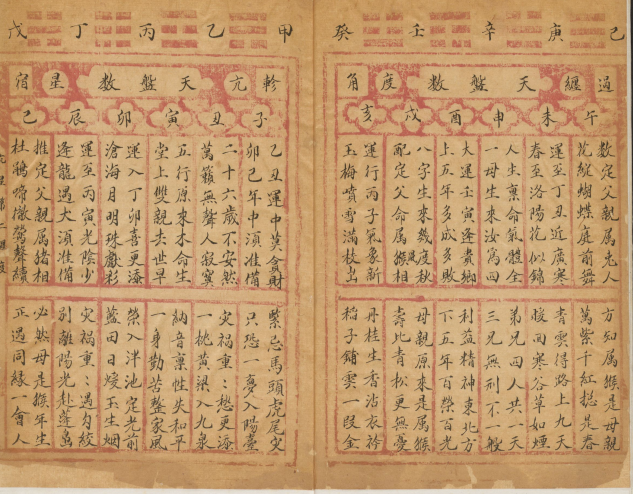 己庚辛壬癸
過纏天盤數度角
午未申酉戌亥
數定父親属兎人
方知属猴是母親
花綻蝴蝶庭前舞
萬紫千紅揔是春
運至丁丑近廣寒
青雲得路上九天
春至洛陽花似錦
暖回寒谷草如烟
人生禀命氣體全
弟兄四人共一天
一母生來汝為四
三兄無刑不一般
大運壬寅逢貴鄉
利益精神東北方
上五年多成多敗
下五年百榮百光
八字生來幾度秋
母親原來是属猴
配定父命属猴相
壽比青松更無憂
運行丙子氣象新
丹桂生香沾衣衿
玉梅噴雪滿枝出
稻子鋪雲一段金
甲乙丙丁戊
軫亢天盤數星宿
子丑寅卯辰巳
乙丑運中莫貪財
緊忌馬頭虎尾灾
卯巳年中須准備
只恐一夢入陽臺
二十六歲不安然
灾禍重:愁更添
萬籟無聲人寂寞
一桃黃梁入九泉
五行原來木命生
納音禀性失和平
堂上雙親去世早
一身勤苦整家風
運入丁卯喜更添
榮入泮池定光前
滄海月明珠獻彩
藍田日煖玉生烟
運至丙寅光陰少
灾禍重:遇勾絞
逢龍遇犬須准備
別離陽光赴蓬島
推定父親属猪相
必然母是猴年生
杜鵑啼徹鶯聲續
正遇同緣一會人